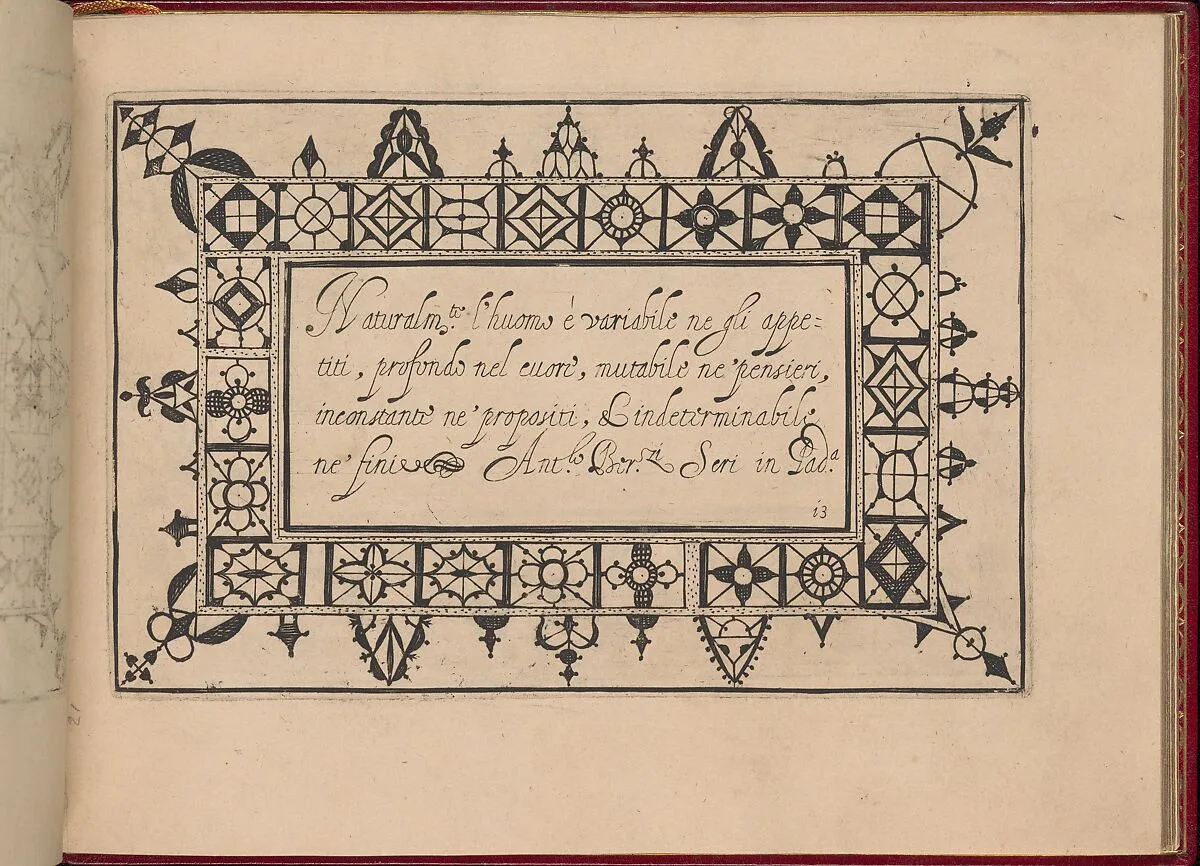 Naturalm.te l'huomo è variabile ne gli appe=
titi, profondo nel cuore, mutabile ne' pensieri,
inconstante ne' propositi, & indeterminabile
ne' fini Ant.o Ber.zzi Scri in Pad.a
13